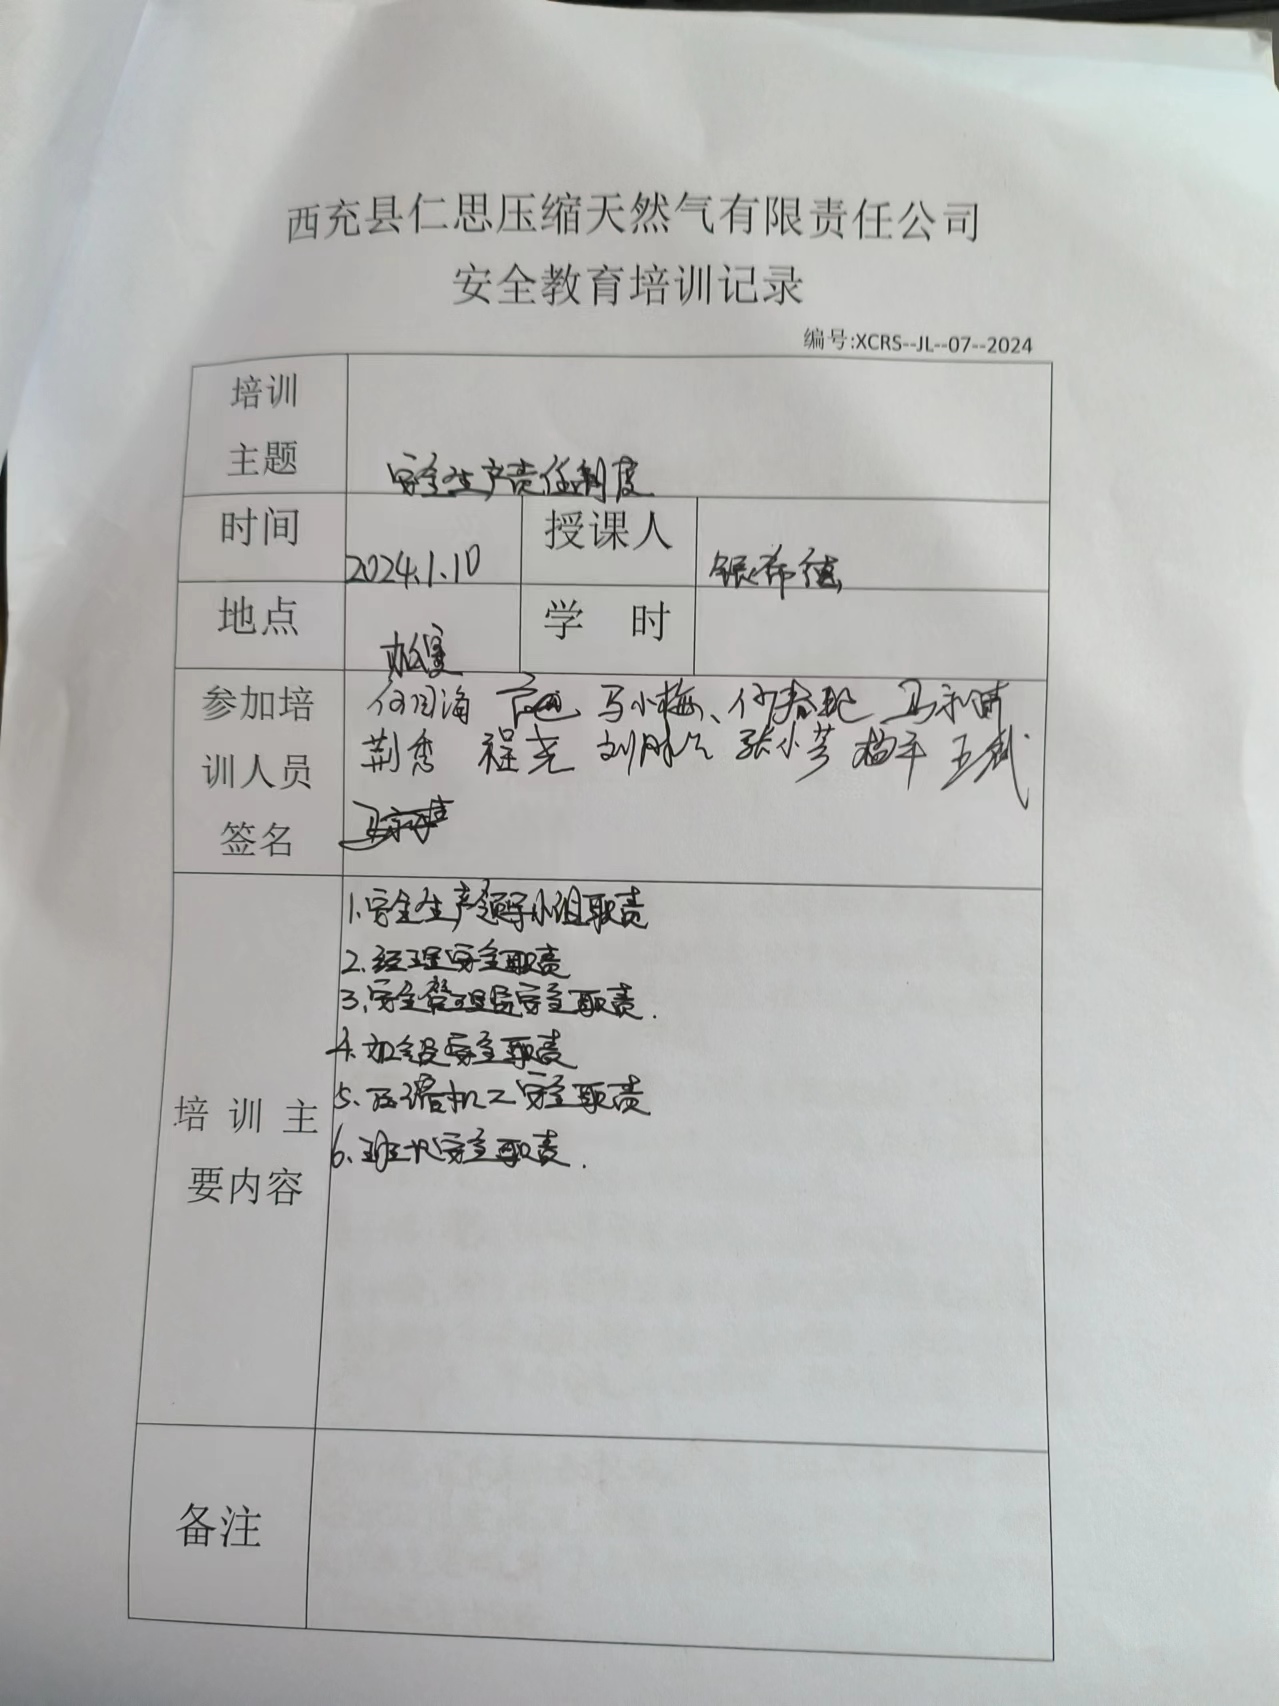 西充县仁思压缩天然气有限责任公司
安全教育培训记录
编号:XCRS--JL--07--2024
培训
主题
安全生产责任制度
时间
2024.1.10
授课人
地点
办公室
学 时
参加培
训人员
签名
马小梅、何春
荆秀 程尧 张小芳 杨平 王斌
1.安全生产领导小组职责
2.经理安全职责
3.安全管理员安全职责.
4.加气员安全职责
5.压缩机工安全职责
6.班长安全职责.
培训主
要内容
备注